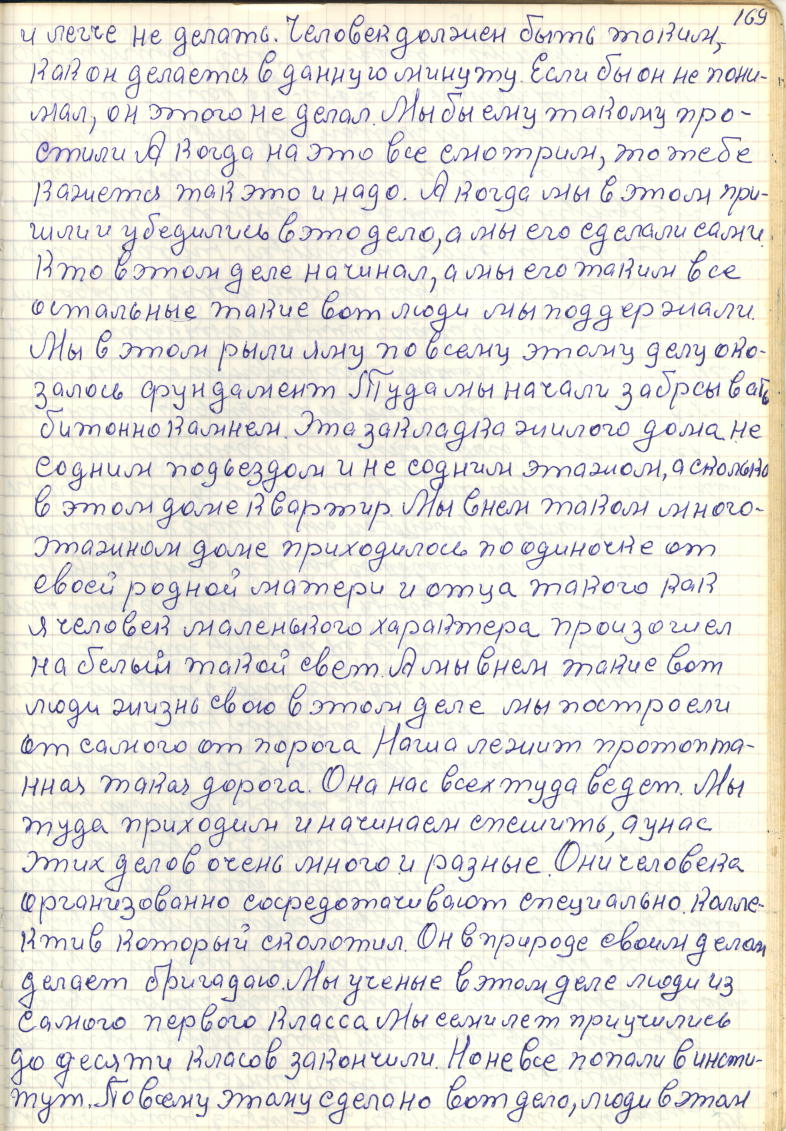 169
и легче не делать. Человек должен быть таким,
как он делается в данную минуту. Если бы он не пони-
мал, он этого не делал. Мы бы ему такому про-
стили А когда на это все смотрим, то тебе
кажется так это и надо. А когда мы в этом при-
шли и убедились в это дело, а мы его сделали сами.
Кто в этом деле начинал, а мы его таким все
остальные такие вот люди мы поддержали.
Мы в этом рыли яму по всему этому делу ока-
залось фундамент Туда мы начали забрсывать
битонно камнем. Эта закладка жилого дома не
содним подъездом и не содним этажом, а сколько
в этом доме квартир. Мы в нем таком много-
этажном доме приходилось по одиночке от
своей родной матери и отца такого как
я человек маленького характера произошел
на белый такой свет. А мы в нем такие вот
люди жизнь свою в этом деле мы построели
от самого от порога Наша лежит протопта-
нная такая дорога. Она нас всех туда ведет. Мы
туда приходим и начинаем спешить, а у нас
этих делов очень много и разные. Они человека
организованно сосредотачивают специально. Калле-
ктив который сколотил. Он в природе своим делам
делает бригадаю. Мы ученые в этом деле люди из
самого первого класса Мы семи лет приучились
до десяти класов закончили. Но не все попали в инсти-
тут. По всему этому сделано вот дело, люди в этом